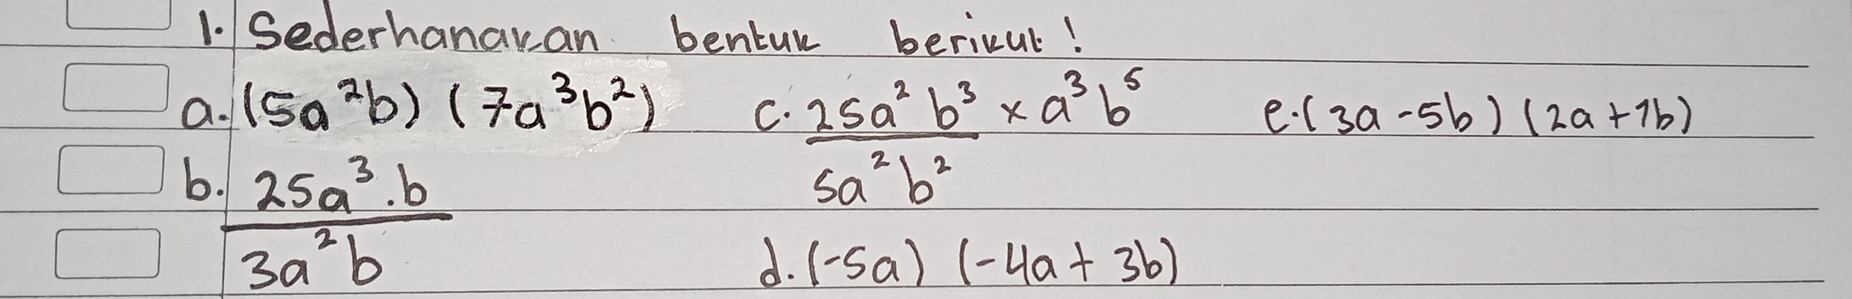 1. Sederhanakan bentuk berikut!
a. (5a²b) (7a³b²)
b. 25a³.b / 3a²b
c. 25a² b³ / 5a²b² × a³b⁵
d. (-5a) (-4a + 3b)
e. (3a - 5b) (2a + 7b)